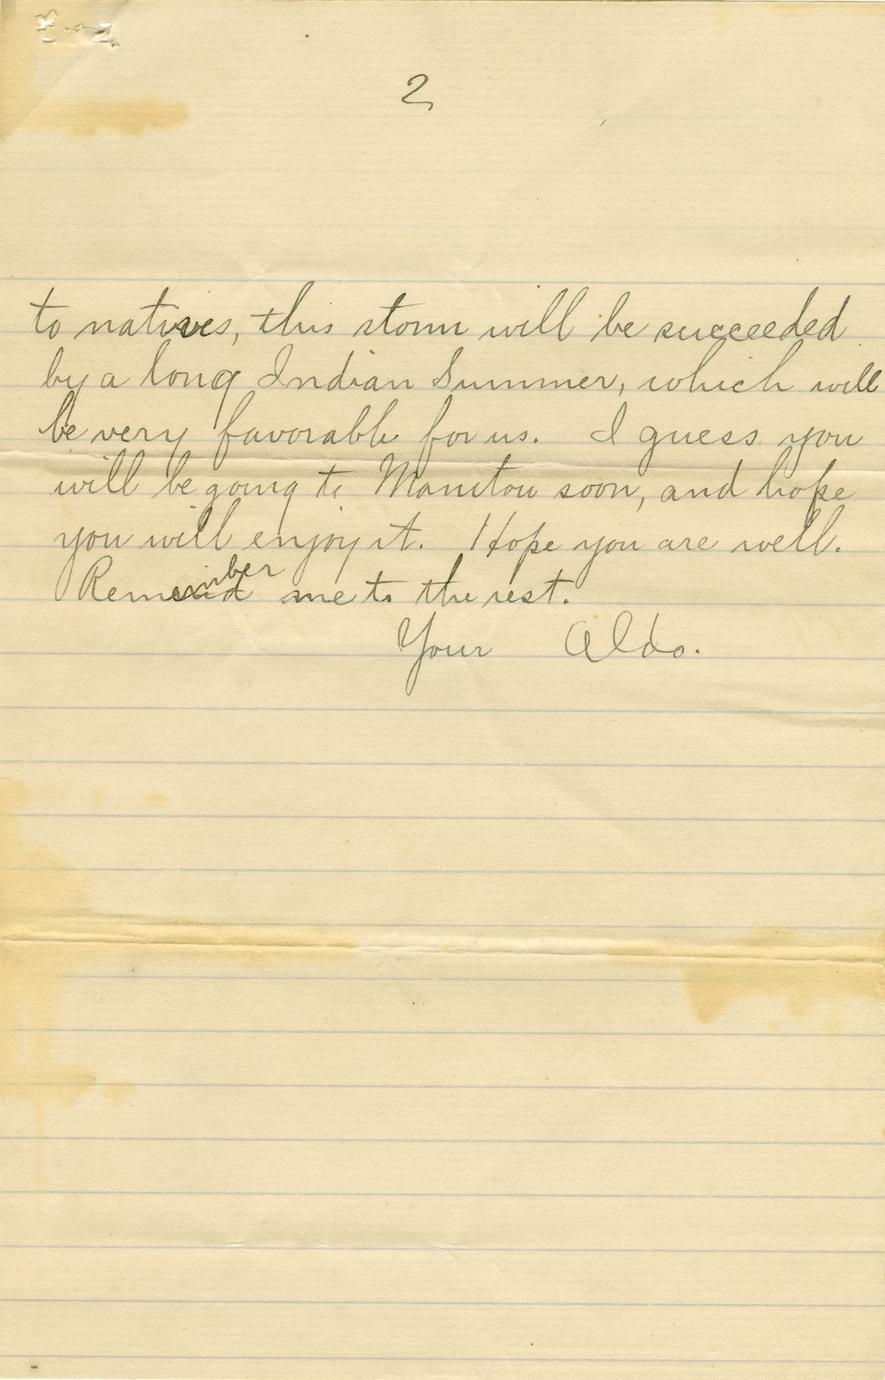 2
to natives, this storm will be succeeded
by a long Indian Summer, which will
be very favorable for us. I guess you
will be going to Manitou soon, and hope
you will enjoy it. Hope you are well.
Remember me to the rest.
Your Aldo.